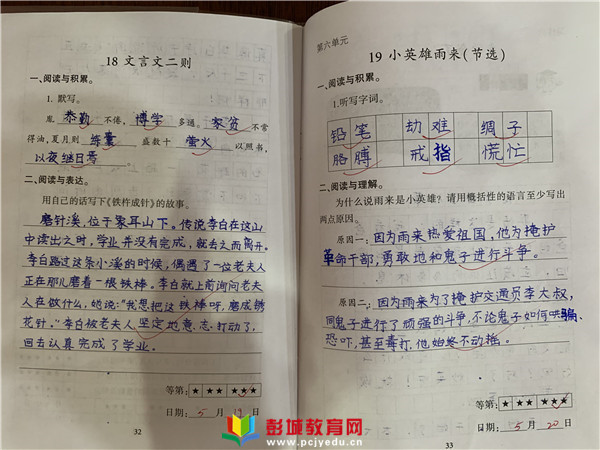 18 文言文二则
一、阅读与积累。
1. 默写。
胤 恭勤 不倦, 博学 多通。 家贫 不常
得油,夏月则 练囊 盛数十 萤火 以照书,
以夜继日焉
二、阅读与表达。
用自己的话写下《铁杵成针》的故事。
磨针溪,位于象耳山下。传说李白在这山
中读书之时,学业并没有完成,就去之而离开。
李白路过这条小溪的时候,偶遇了一位老夫人
正在那儿磨着一根铁棒。李白就上前询问老夫
人在做什么,她说:“我想把这铁棒呀,磨成绣
花针。”李白被老夫人坚定地意志打动了,
回去认真完成了学业。
等第: ★ ★★ ★★★
日期: 5 月 19 日
32
第六单元
19 小英雄雨来(节选)
一、阅读与积累。
1. 听写字词。
铅笔 劫难 绸子
胳膊 戒指 慌忙
二、阅读与理解。
为什么说雨来是小英雄?请用概括性的语言至少写出
两点原因。
原因一: 因为雨来热爱祖国,他为掩护
革命干部,勇敢地和鬼子进行斗争。
原因二: 因为雨来为了掩护交通员李大叔,
同鬼子进行了顽强的斗争,不论鬼子如何哄骗、
恐吓,甚至毒打,他始终不动摇。
等第: ★ ★★ ★★★
日期: 5 月 20 日
33
彭城教育网
www.pcjyedu.cn